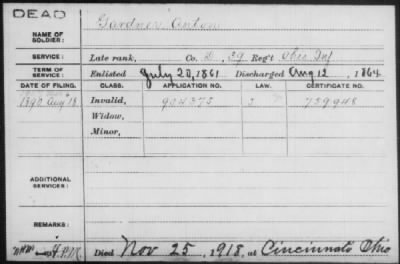 DEAD
Gardner Anton
NAME OF
SOLDIER:
SERVICE: Late rank, Co. D, 39 Reg't Ohio Inf
TERM OF
SERVICE: Enlisted July 20, 1861 Discharged Aug 12, 1864
DATE OF FILING. CLASS. APPLICATION NO. LAW. CERTIFICATE NO.
1890 Aug 18 Invalid, 904375 739948
Widow,
Minor,
ADDITIONAL
SERVICES:
REMARKS:
Died Nov 25, 1918, at Cincinnati Ohio